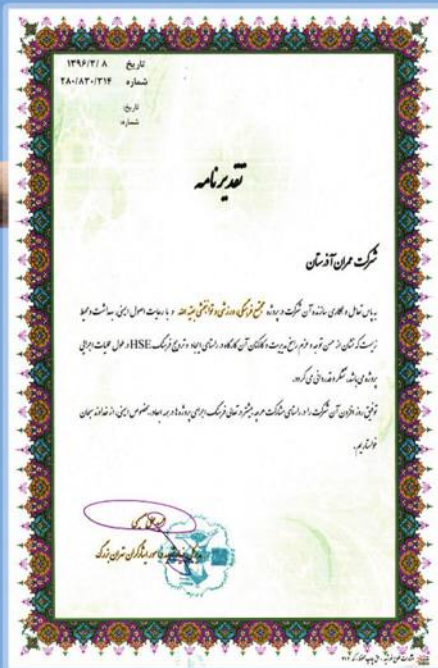 تاریخ ۱۳۹۶/۲/۸
شماره ۲۸۰/۸۳۰/۳۱۴
تاریخ:
شماره:
تقدیرنامه
شرکت عمران آذرستان
به پاس تعامل و همکاری سازنده آن شرکت در پروژه مجتمع فرهنگی، ورزشی و توانبخشی بقیه الله و با رعایت اصول ایمنی، بهداشت و محیط
زیست که نشان از حسن توجه و عزم راسخ مدیریت و کارکنان آن کارگاه در راستای ایجاد و ترویج فرهنگ HSE در طول عملیات اجرایی
پروژه می باشد، تشکر و قدردانی می گردد.
توفیق روز افزون آن شرکت را در راستای مشارکت هر چه بیشتر در تعالی فرهنگ اجرای پروژه ها در همه ابعاد، بخصوص ایمنی، از خداوند سبحان
خواستاریم.
امور ایثارگران تهران بزرگ